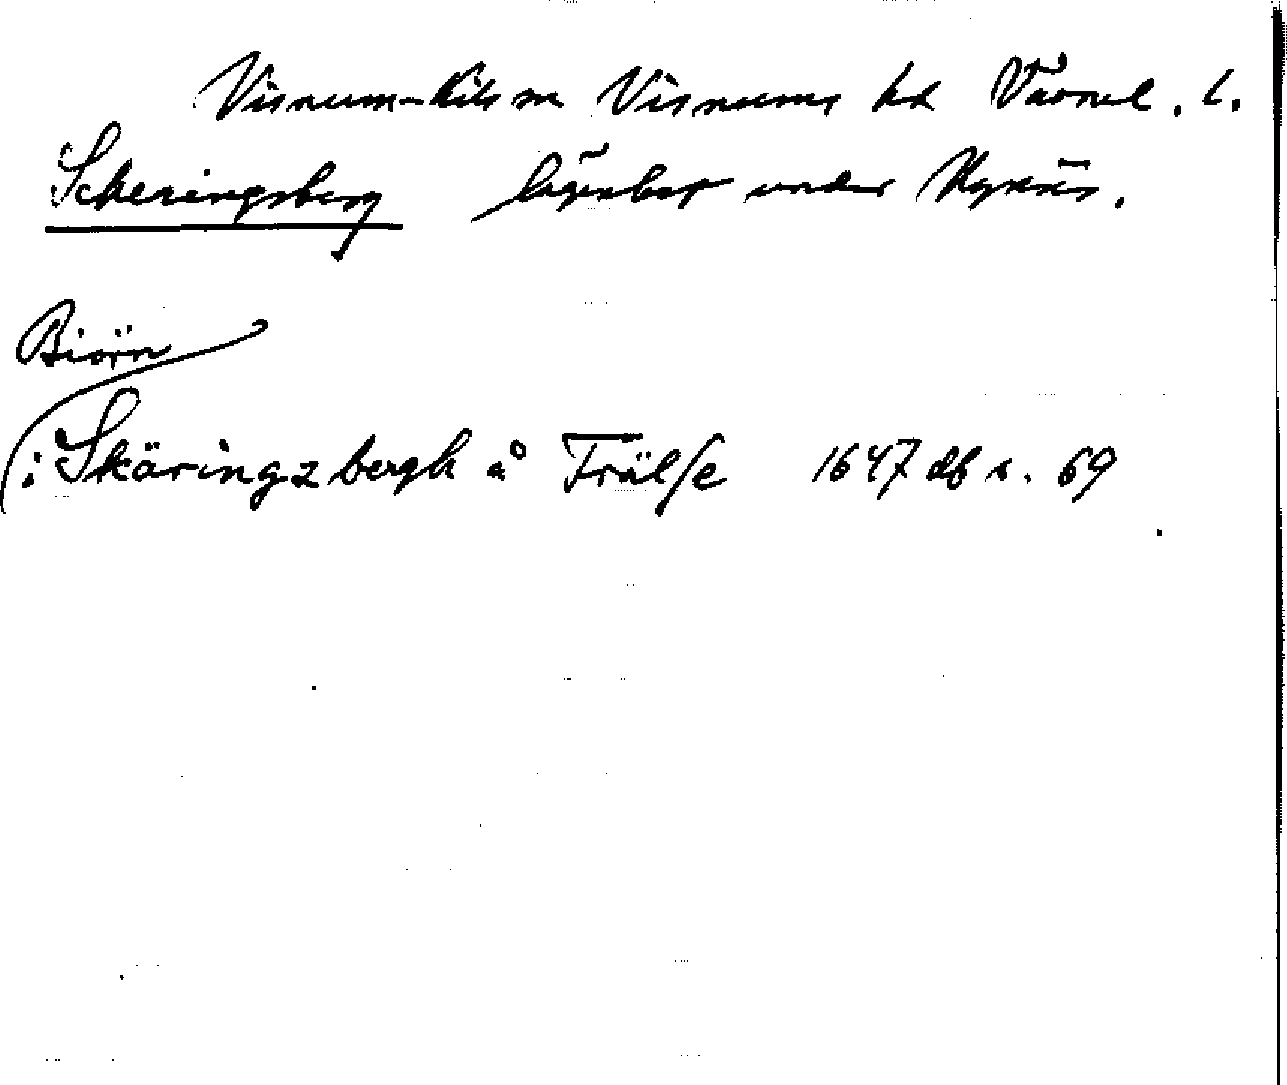 Visnum-Kils sn Visnums hd Värml. l.
Scheringsberg lägenhet under Nynäs.
Biörn
i Skäringzbergh å Frälse 1647 db s. 69